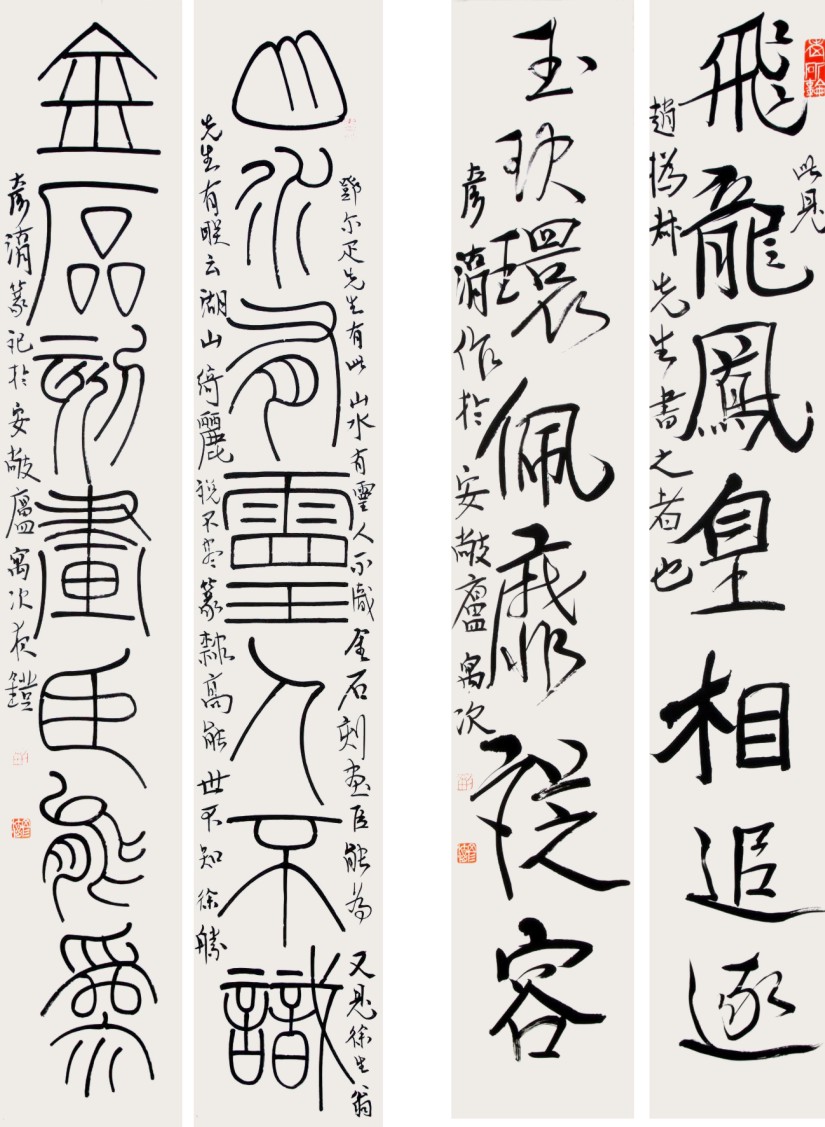 飛龍鳳皇相追逐
此見
趙撝叔先生書之者也
玉玦環佩靡從容
彥湑作於安敲廬寓次
山水有靈人不識
鄧尔疋先生有此山水有靈人不識金石刻画臣能為又見徐生翁
先生有联云湖山綺麗説不尽篆隸高能世不知徐勝
金石刻畫臣能為
彥湑篆記於安敲廬寓次夜鐙